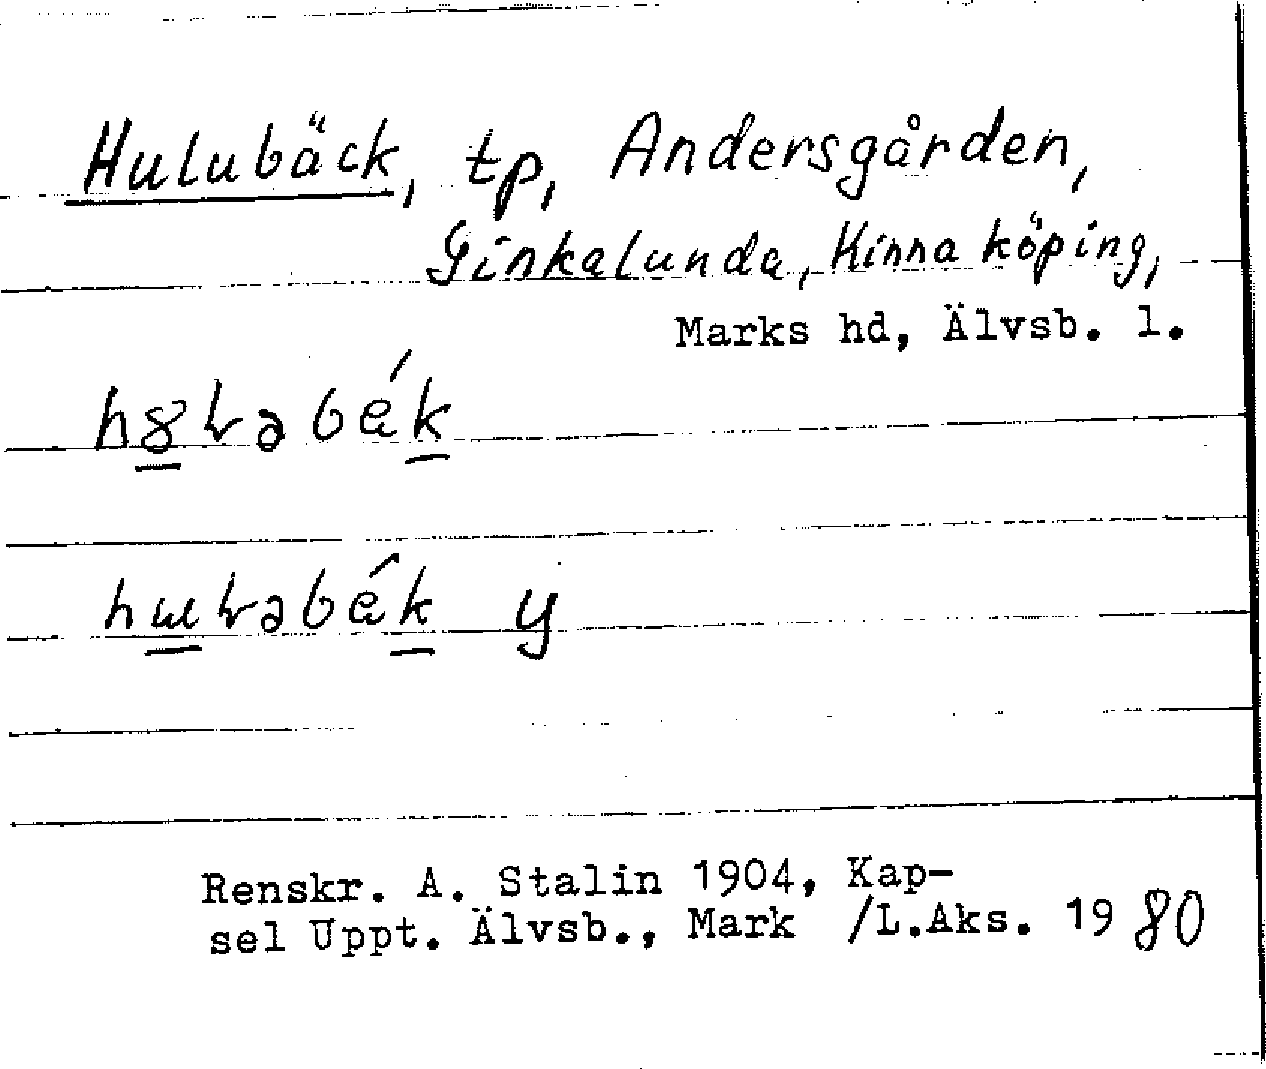 Hulubäck, tp, Andersgården,
Ginkalunda, Kinna köping,
Marks hd, Älvsb. l.
y
Renskr. A. Stalin 1904, Kap-
sel Uppt. Älvsb., Mark /L.Aks. 1980